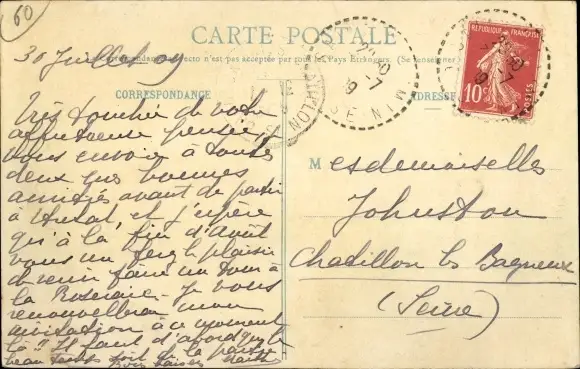 60
CARTE POSTALE
La Correspondance au recto n'est pas acceptée par tous les Pays Etrangers. (Se renseigner
CORRESPONDANCE
ADRESSE
REPUBLIQUE FRANÇAISE
10c
POSTES
30 Juillet 09
Très touchée de votre
affectueuse pensée, je
vous envoie à toutes
deux mes bonnes
amitiés avant de partir
à et j'espère
qu'à la fin d'août
vous me ferez le plaisir
de venir faire un tour à
la Roseraie. Je vous
renouvellerai mon
invitation à ce moment
là !! Il faut d'abord que le
beau temps soit de la partie
Bons baisers
Mesdemoiselles
Johnston
Chatillon les Bagneux
(Seine)